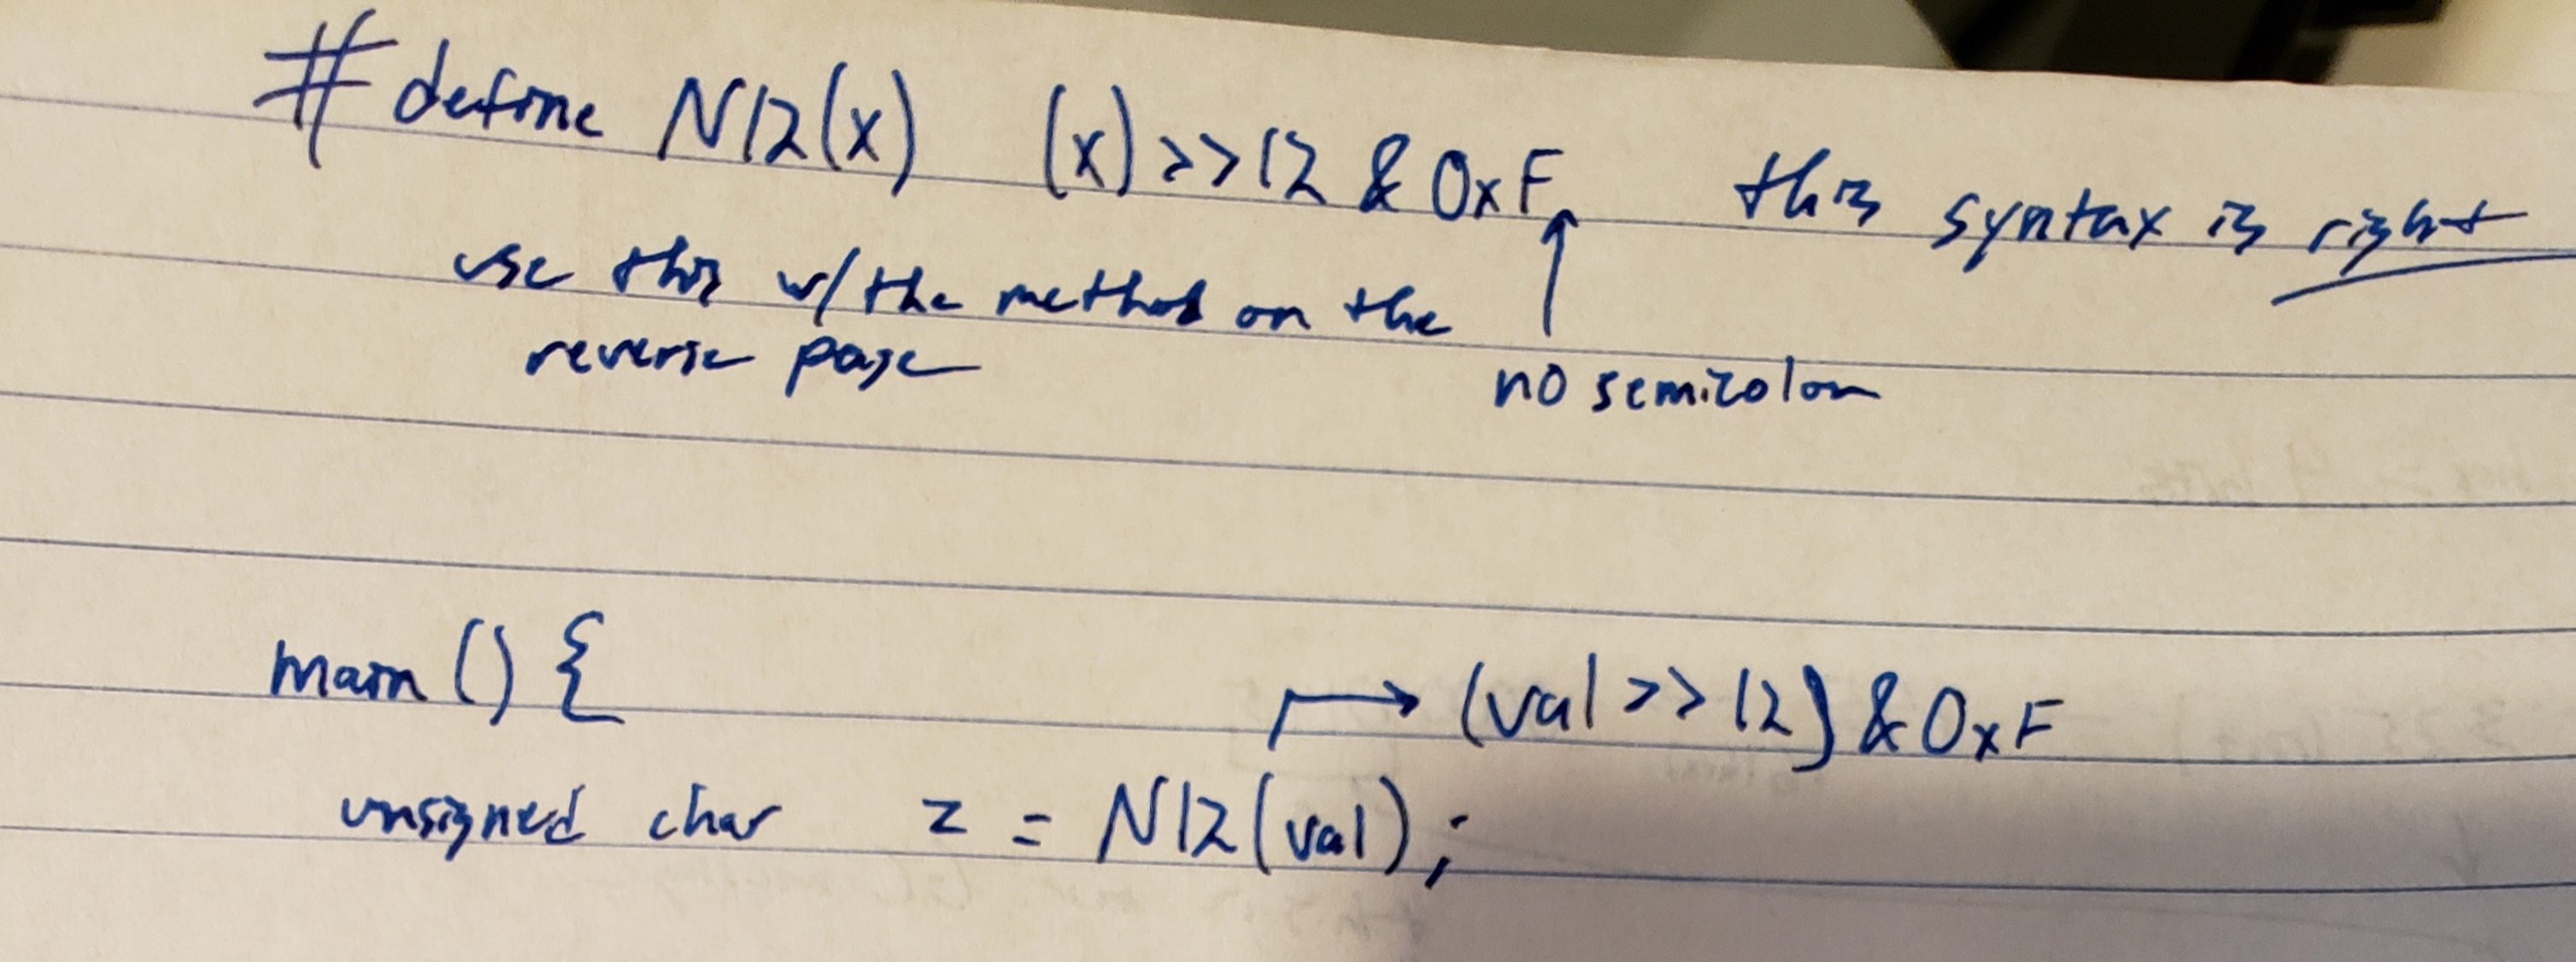 #define N12(x) (x)>>12 & 0xF this syntax is right
use this w/the method on the
reverse page
no semicolon
main () {
(val >> 12) & 0xF
unsigned char z = N12(val);